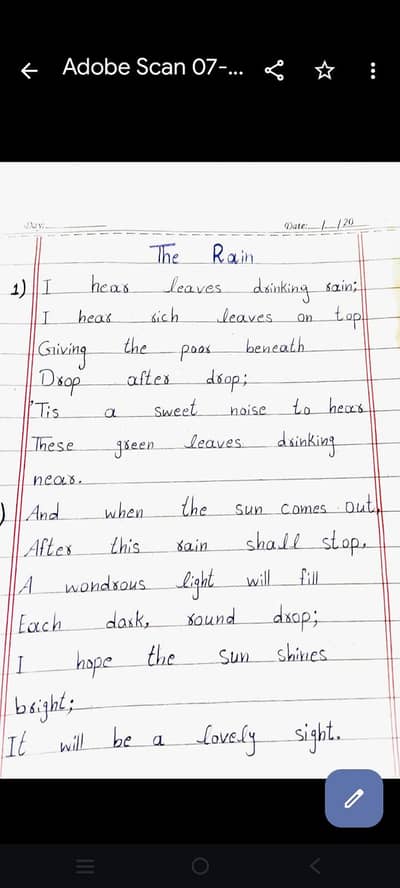 Adobe Scan 07-...
Day:
Date: / /20
The Rain
1) I hear leaves drinking rain;
I hear rich leaves on top
Giving the poor beneath
Drop after drop;
'Tis a sweet noise to hear
These green leaves drinking
near.
) And when the sun comes out,
After this rain shall stop,
A wondrous light will fill
Each dark, round drop;
I hope the Sun shines
bright;
It will be a lovely sight.